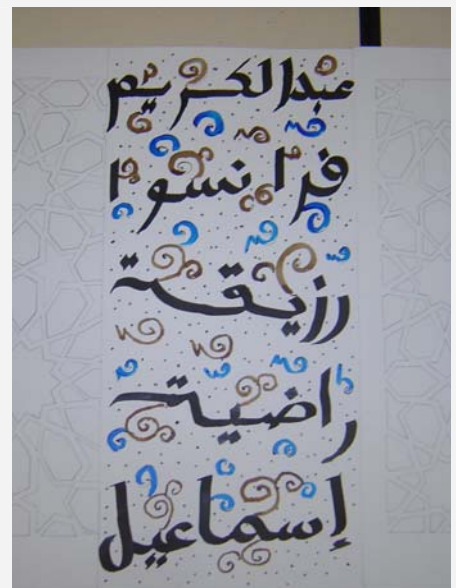 عبدالكريم
فرانسوا
رزيقة
راضية
إسماعيل